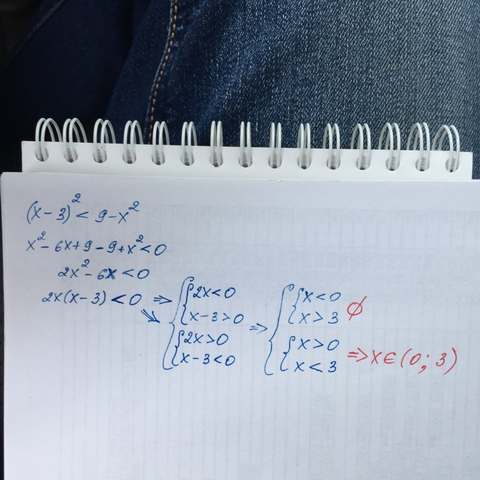 (x-3)² < 9-x²
x² - 6x + 9 - 9 + x² < 0
2x² - 6x < 0
2x(x-3) < 0 => { { 2x < 0 => { { x < 0
x-3 > 0 x > 3 ∅
{ 2x > 0 { x > 0
x-3 < 0 x < 3 => x ∈ (0; 3)